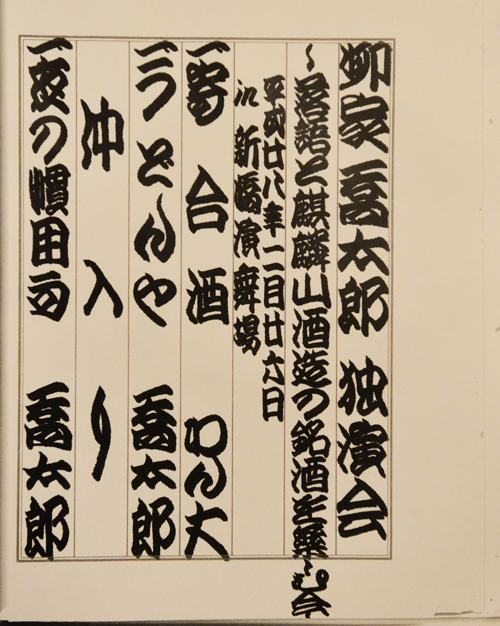 柳家 喬太郎 独演会
～落語と麒麟山酒造の銘酒を楽しむ会
平成廿八年二月廿六日
in 新橋演舞場
一、寄合酒 わん丈
一、うどんや 喬太郎
仲入り
一、夜の慣用句 喬太郎